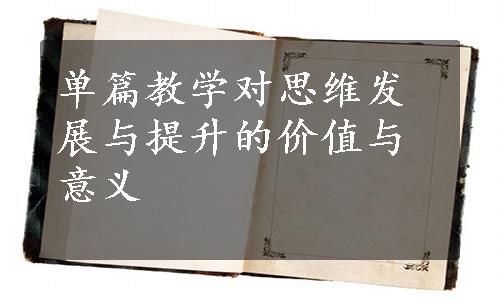 单篇教学对思维发
展与提升的价值与
意义